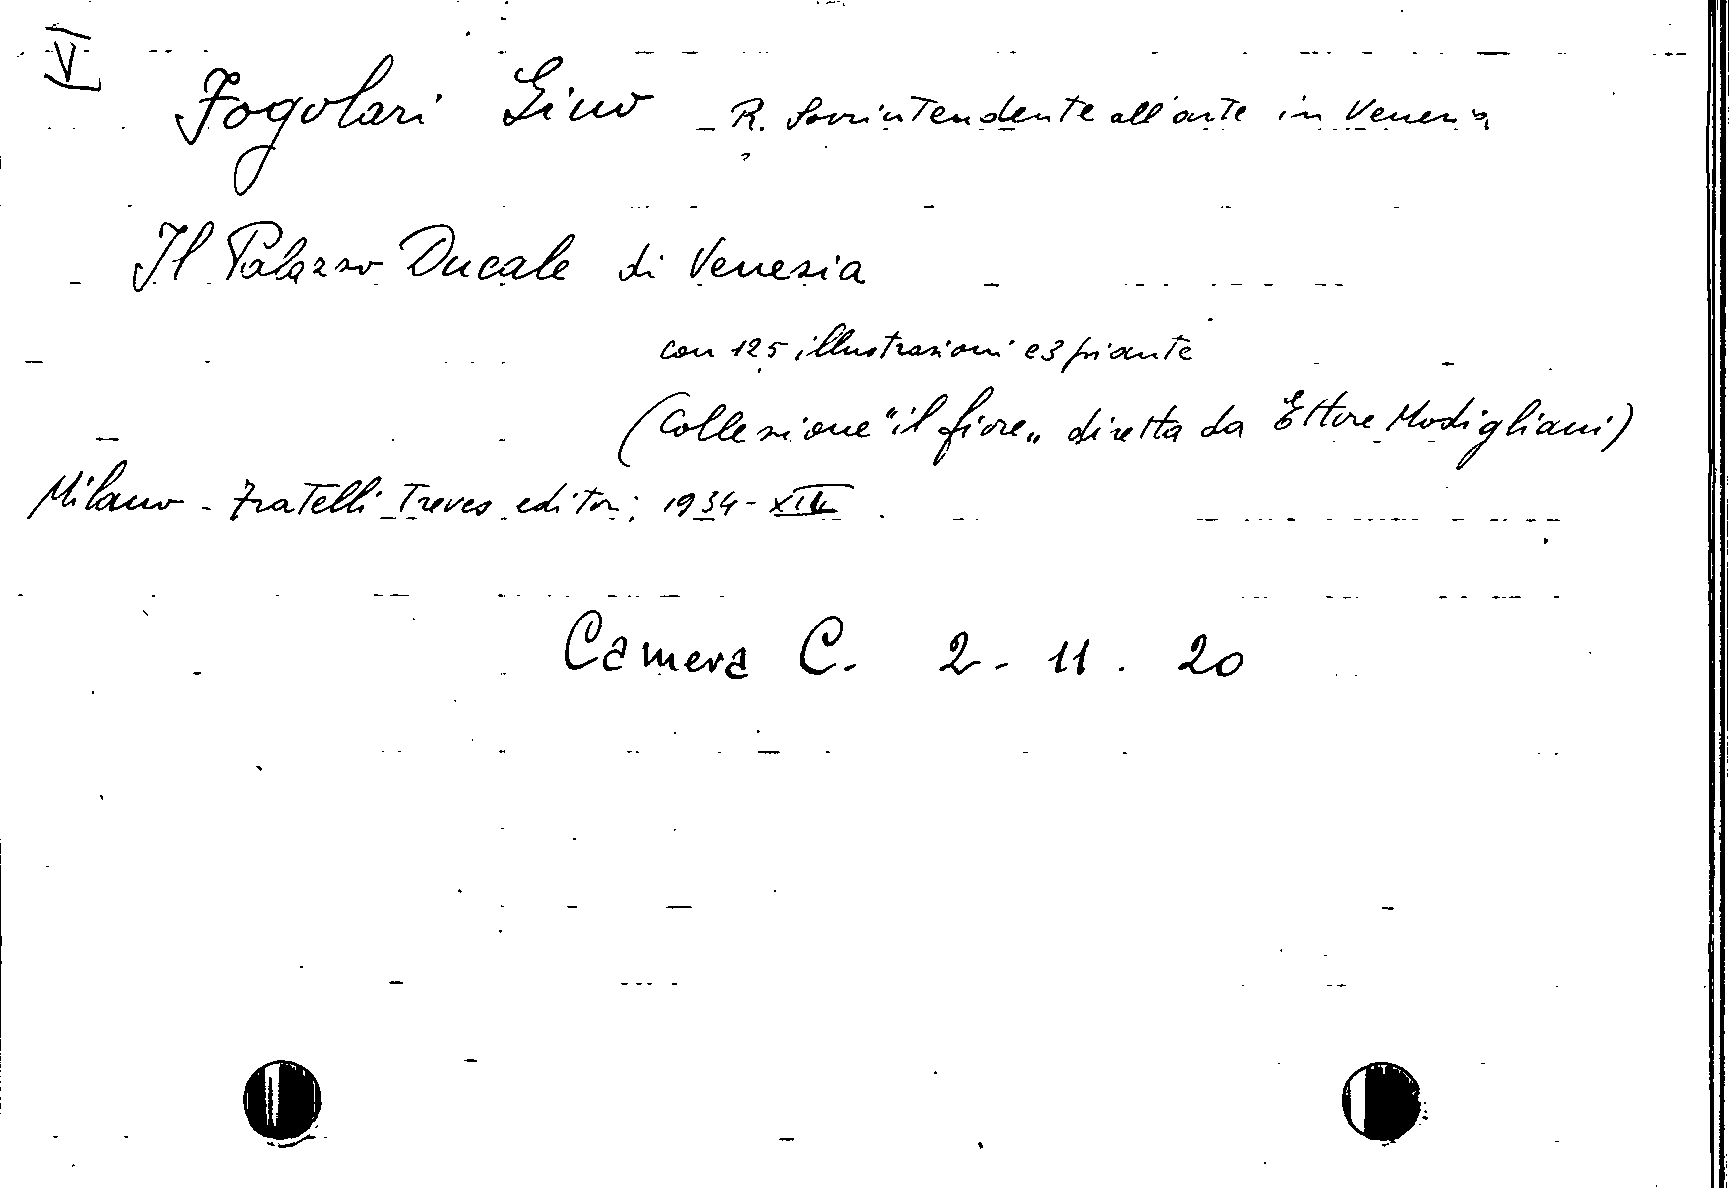 V
Fogolari Gino - R. Sovrintendente all'arte in Venezia
Il Palazzo Ducale di Venezia
con 125 illustrazioni e 3 piante
(Collezione "il fiore„ diretta da Ettore Modigliani)
Milano - Fratelli Treves editori, 1934 - XIII
Camera C. 2 - 11 . 20